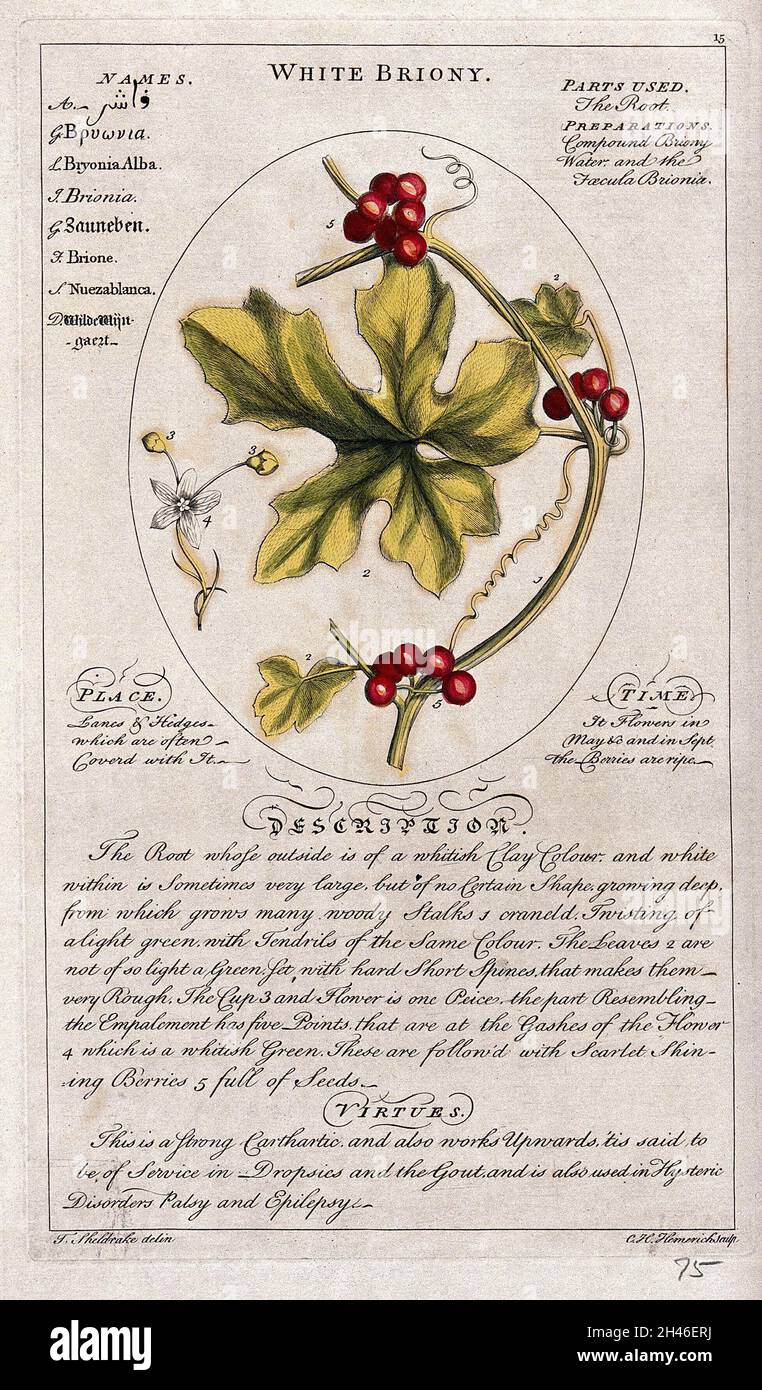 15
WHITE BRIONY.
NAMES.
A. فاشر
G. Βρυωνια.
L. Bryonia Alba.
I. Brionia.
G. Zauneben.
F. Brione.
S. Nuezablanca.
D. Wilde Wijn-
-gaert.
PARTS USED.
The Root.
PREPARATIONS.
Compound Briony
Water, and the
Fœcula Brioniæ.
5
2
3
3
4
2
1
2
5
PLACE.
Lanes & Hedges
which are often
Coverd with It.
TIME
It Flowers in
May &c and in Sept.
the Berries are ripe
DESCRIPTION.
The Root whose outside is of a whitish Clay Colour, and white
within is Sometimes very large, but of no Certain Shape, growing deep,
from which grows many woody Stalks 1 craneld, Twisting, of
a light green, with Tendrils of the Same Colour. The Leaves 2 are
not of so light a Green, Yet with hard Short Spines, that makes them
very Rough, The Cup 3 and Flower is one Peice, the part Resembling
the Empalement has five Points, that are at the Gashes of the Flower
4 which is a whitish Green. These are follow'd with Scarlet Shin-
ing Berries 5 full of Seeds.
VIRTUES.
This is a strong Carthartic, and also works Upwards, 'tis said to
be, of Service in Dropsies and the Gout, and is also used in Hysteric
Disorders Palsy and Epilepsy.
T. Sheldrake delin
C. H. Hemerich sculp.
75
alamy
alamy
Image ID: 2H46ERJ
www.alamy.com